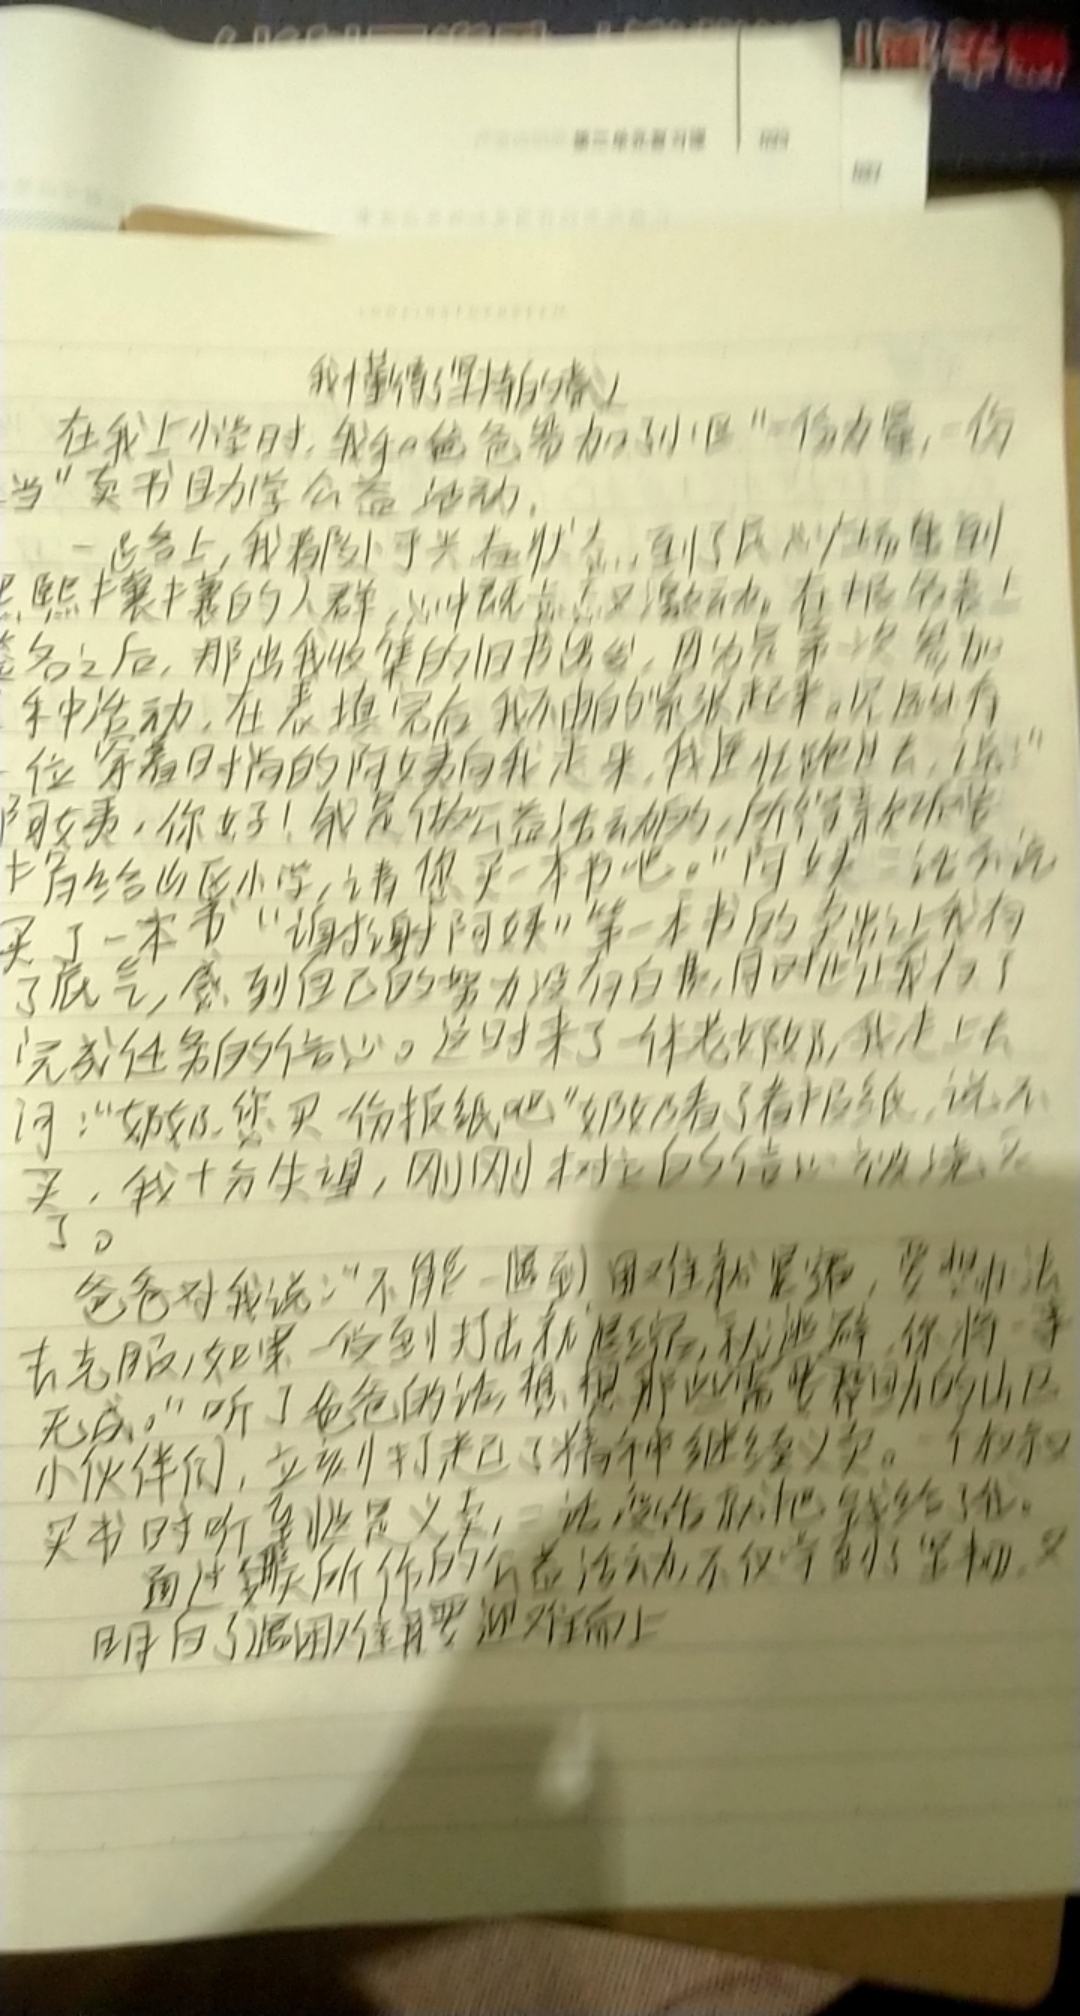 我懂得了坚持的意义
在我上小学时,我和爸爸参加了小区"一份力量,一份
当"卖书助学公益活动.
一路上,我都处于兴在状态,到了民心广场看到
熙攘攘的人群,心中既忐忑又激动。在报名表上
签名之后,那出我收集的旧书出发,因为是第一次参加
种活动,在表填完后我不由的紧张起来。只见有
一位穿着时尚的阿姨向我走来,我连忙跑过去,说:"
阿姨,你好!我是做公益活动的,所得
给山区小学,请您买一本书吧。"阿姨二话不说
买了一本书"谢谢阿姨"第一本书的卖出让我有
了底气,感到自己的努力没有白费,同时也让我有了
完成任务的信心。这时来了一休老奶奶,我走上去
问:"奶奶,您买一份报纸吧"奶奶看了看报纸,说不
买,我十分失望,刚刚树立的信心
了。
爸爸对我说:"不能一遇到困难就退缩,要想办法
去克服,如果一受到打击就退缩,就逃避,你将一事
无成。"听了爸爸的话,想想那些需要帮助的山区
小伙伴们,立刻打起了精神继续义卖。一个叔叔
买书时听到是义卖,二话没说就把钱给了我。
通过 所作的公益活动,不仅学到了坚韧,又
明白了遇困难 要迎难而上